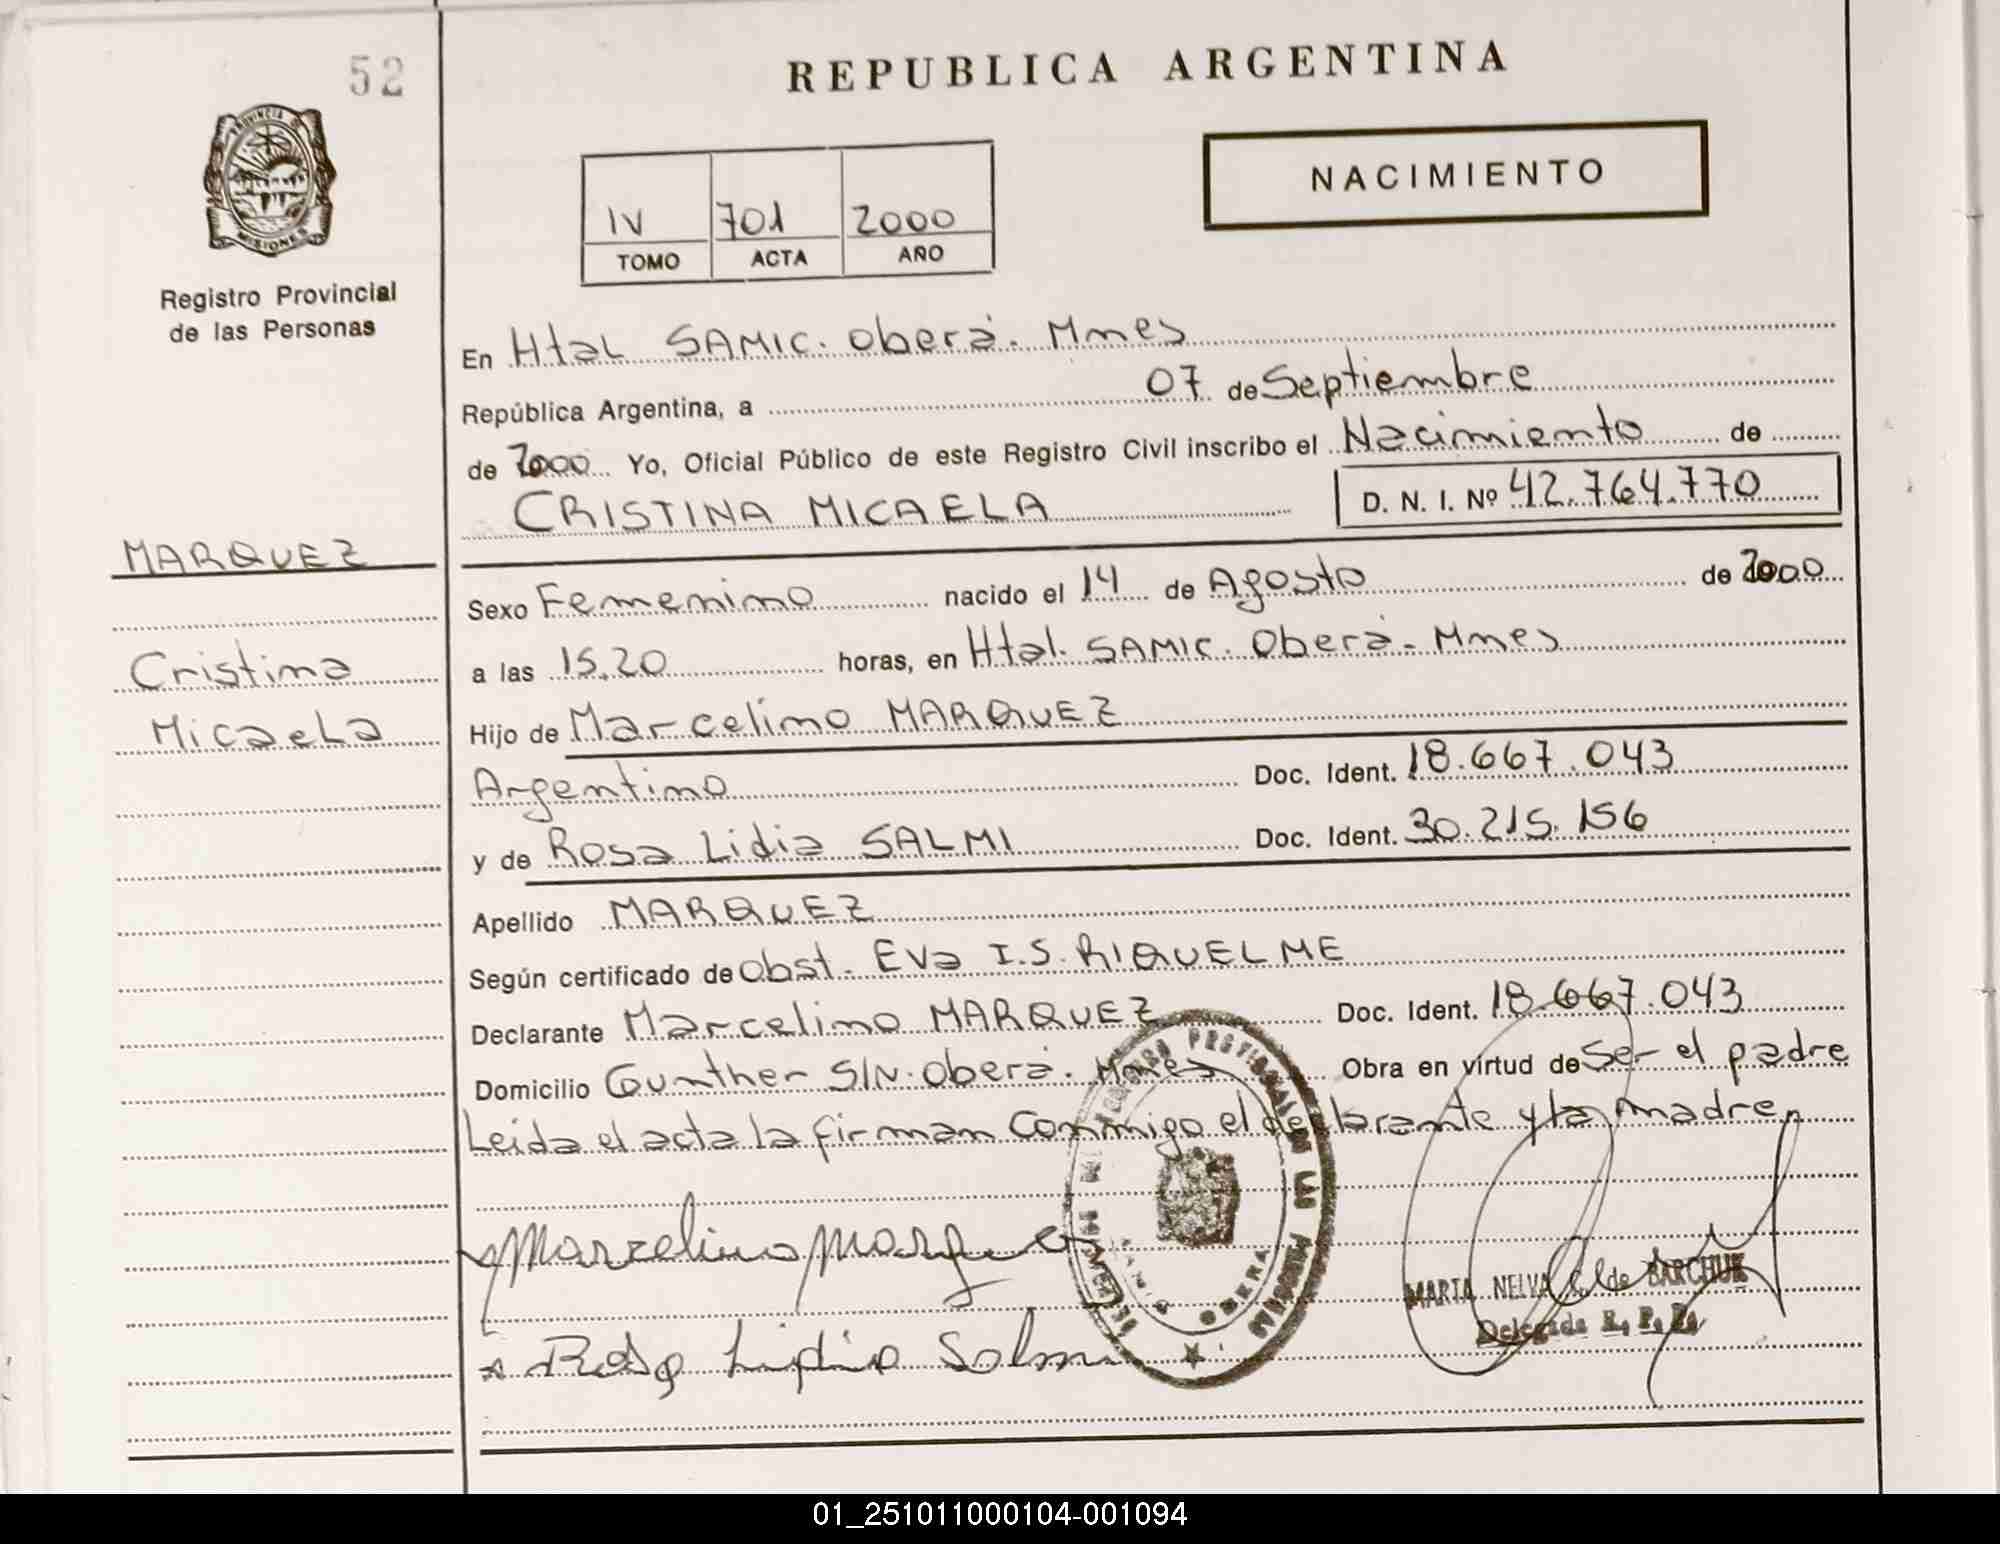 52
REPUBLICA ARGENTINA
PROVINCIA DE
MISIONES
Registro Provincial
de las Personas
NACIMIENTO
IV 701 2000
TOMO ACTA AÑO
En Htal SAMIC. Oberá. Mnes
República Argentina, a 07 de Septiembre
de 2000 Yo, Oficial Público de este Registro Civil inscribo el Nacimiento de
CRISTINA MICAELA D. N. I. Nº 42.764.770
MARQUEZ
Cristina
Micaela
Sexo Femenino nacido el 14 de Agosto de 2000
a las 15,20 horas, en Htal. SAMIC. Oberá. Mnes
Hijo de Marcelino MARQUEZ
Argentino Doc. Ident. 18.667.043
y de Rosa Lidia SALMI Doc. Ident. 30.215.156
Apellido MARQUEZ
Según certificado de Obst. Eva I.S. RIQUELME
Declarante Marcelino MARQUEZ Doc. Ident. 18.667.043
Domicilio Gunther S/N. Oberá. Mnes Obra en virtud de Ser el padre
Leida el acta la firman conmigo el declarante y la madre
Marcelino Marquez
PROVINCIAL DE LAS PERSONAS
OBERA
MARTA NELVA C. de BARCHUK
Delegada R. P. P.
Rosa Lidia Salmi
01_251011000104-001094